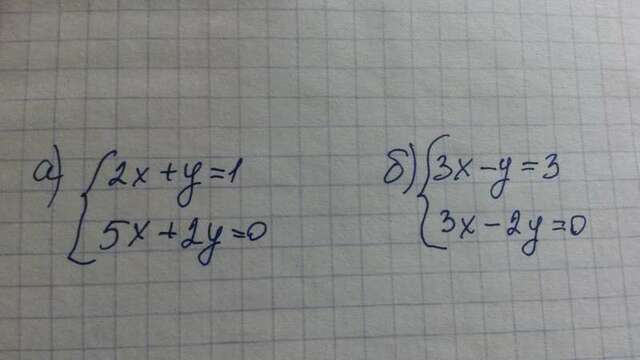 а) { 2x + y = 1
5x + 2y = 0
б) { 3x - y = 3
3x - 2y = 0